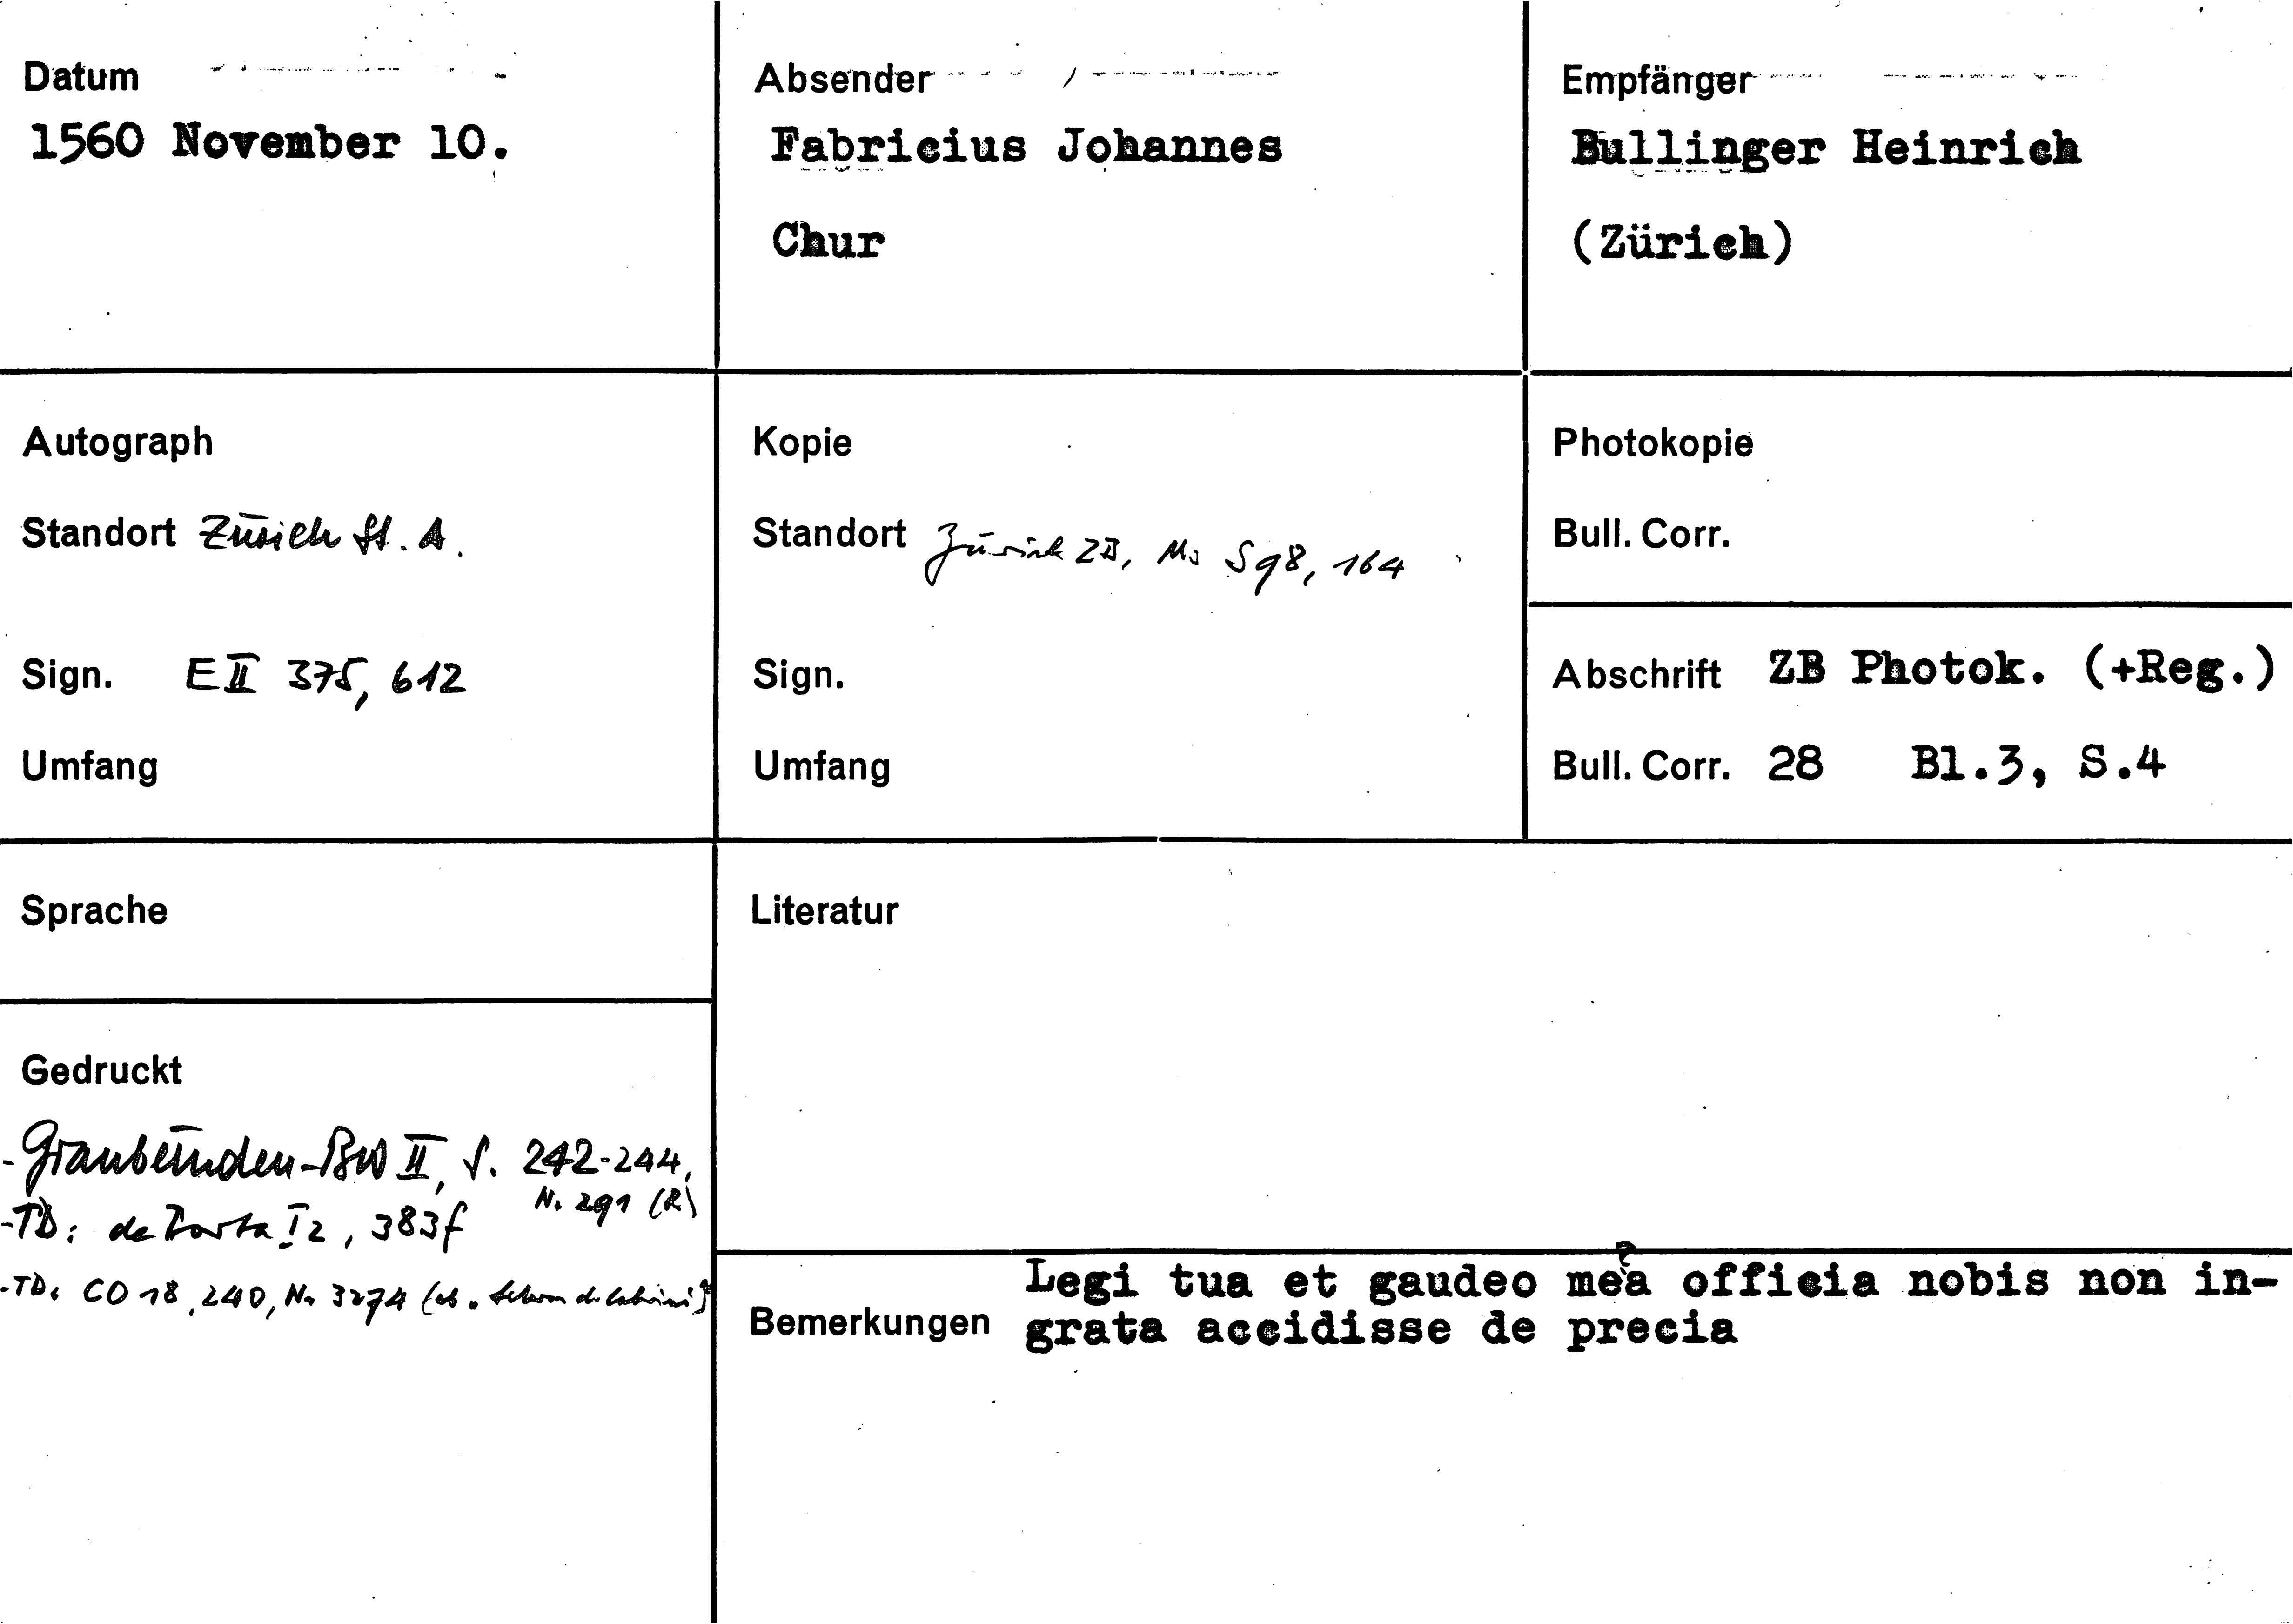 Datum
1560 November 10.
Absender
Fabricius Johannes
Chur
Empfänger
Bullinger Heinrich
(Zürich)
Autograph
Standort Zürich St. A.
Sign. E II 375, 612
Umfang
Kopie
Standort Zürich ZB, Ms S 98, 164
Sign.
Umfang
Photokopie
Bull. Corr.
Abschrift ZB Photok. (+Reg.)
Bull. Corr. 28 Bl.3, S.4
Sprache
Literatur
Gedruckt
- Graubünden-BW II, S. 242-244,
N. 291 (R)
-TD: de Porta I 2, 383f
-TD: CO 18, 240, Nr 3274
Bemerkungen
?
Legi tua et gaudeo mea officia nobis non in-
grata accidisse de precia